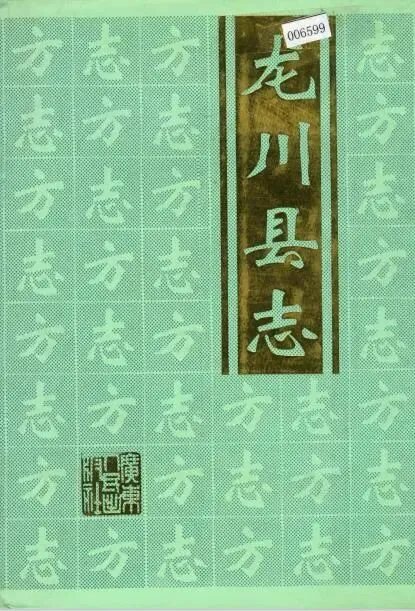 006599
龙川县志
方志方志
志方志方
方志方志
志方志方
方志方志
志方志方志方
方方志方志
志方志方志方
廣東
人民出
版社